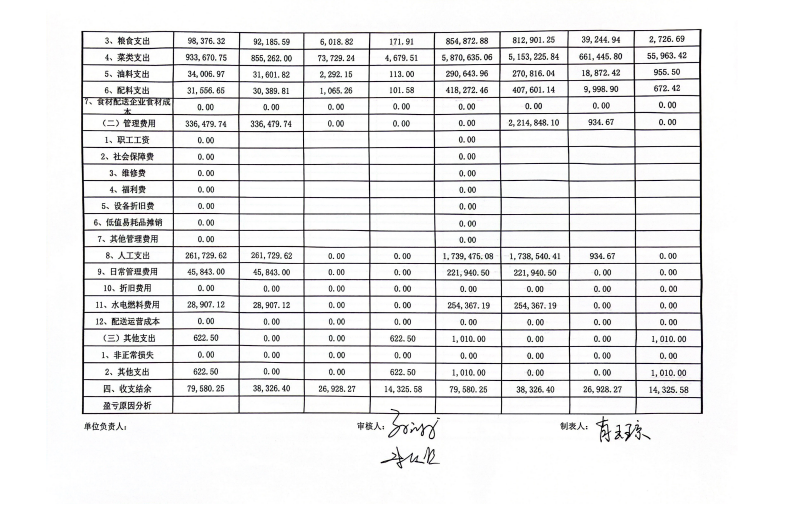 3、粮食支出 98,376.32 92,185.59 6,018.82 171.91 854,872.88 812,901.25 39,244.94 2,726.69
4、菜类支出 933,670.75 855,262.00 73,729.24 4,679.51 5,870,635.06 5,153,225.84 661,445.80 55,963.42
5、油料支出 34,006.97 31,601.82 2,292.15 113.00 290,643.96 270,816.04 18,872.42 955.50
6、配料支出 31,556.65 30,389.81 1,065.26 101.58 418,272.46 407,601.14 9,998.90 672.42
7、食材配送企业食材成本 0.00 0.00 0.00 0.00 0.00 0.00 0.00 0.00
（二）管理费用 336,479.74 336,479.74 0.00 0.00 0.00 2,214,848.10 934.67 0.00
1、职工工资 0.00 0.00
2、社会保障费 0.00 0.00
3、维修费 0.00 0.00
4、福利费 0.00 0.00
5、设备折旧费 0.00 0.00
6、低值易耗品摊销 0.00 0.00
7、其他管理费用 0.00 0.00
8、人工支出 261,729.62 261,729.62 0.00 0.00 1,739,475.08 1,738,540.41 934.67 0.00
9、日常管理费用 45,843.00 45,843.00 0.00 0.00 221,940.50 221,940.50 0.00 0.00
10、折旧费用 0.00 0.00 0.00 0.00 0.00 0.00 0.00 0.00
11、水电燃料费用 28,907.12 28,907.12 0.00 0.00 254,367.19 254,367.19 0.00 0.00
12、配送运营成本 0.00 0.00 0.00 0.00 0.00 0.00 0.00 0.00
（三）其他支出 622.50 0.00 0.00 622.50 1,010.00 0.00 0.00 1,010.00
1、非正常损失 0.00 0.00 0.00 0.00 0.00 0.00 0.00 0.00
2、其他支出 622.50 0.00 0.00 622.50 1,010.00 0.00 0.00 1,010.00
四、收支结余 79,580.25 38,326.40 26,928.27 14,325.58 79,580.25 38,326.40 26,928.27 14,325.58
盈亏原因分析
单位负责人： 审核人： 制表人：